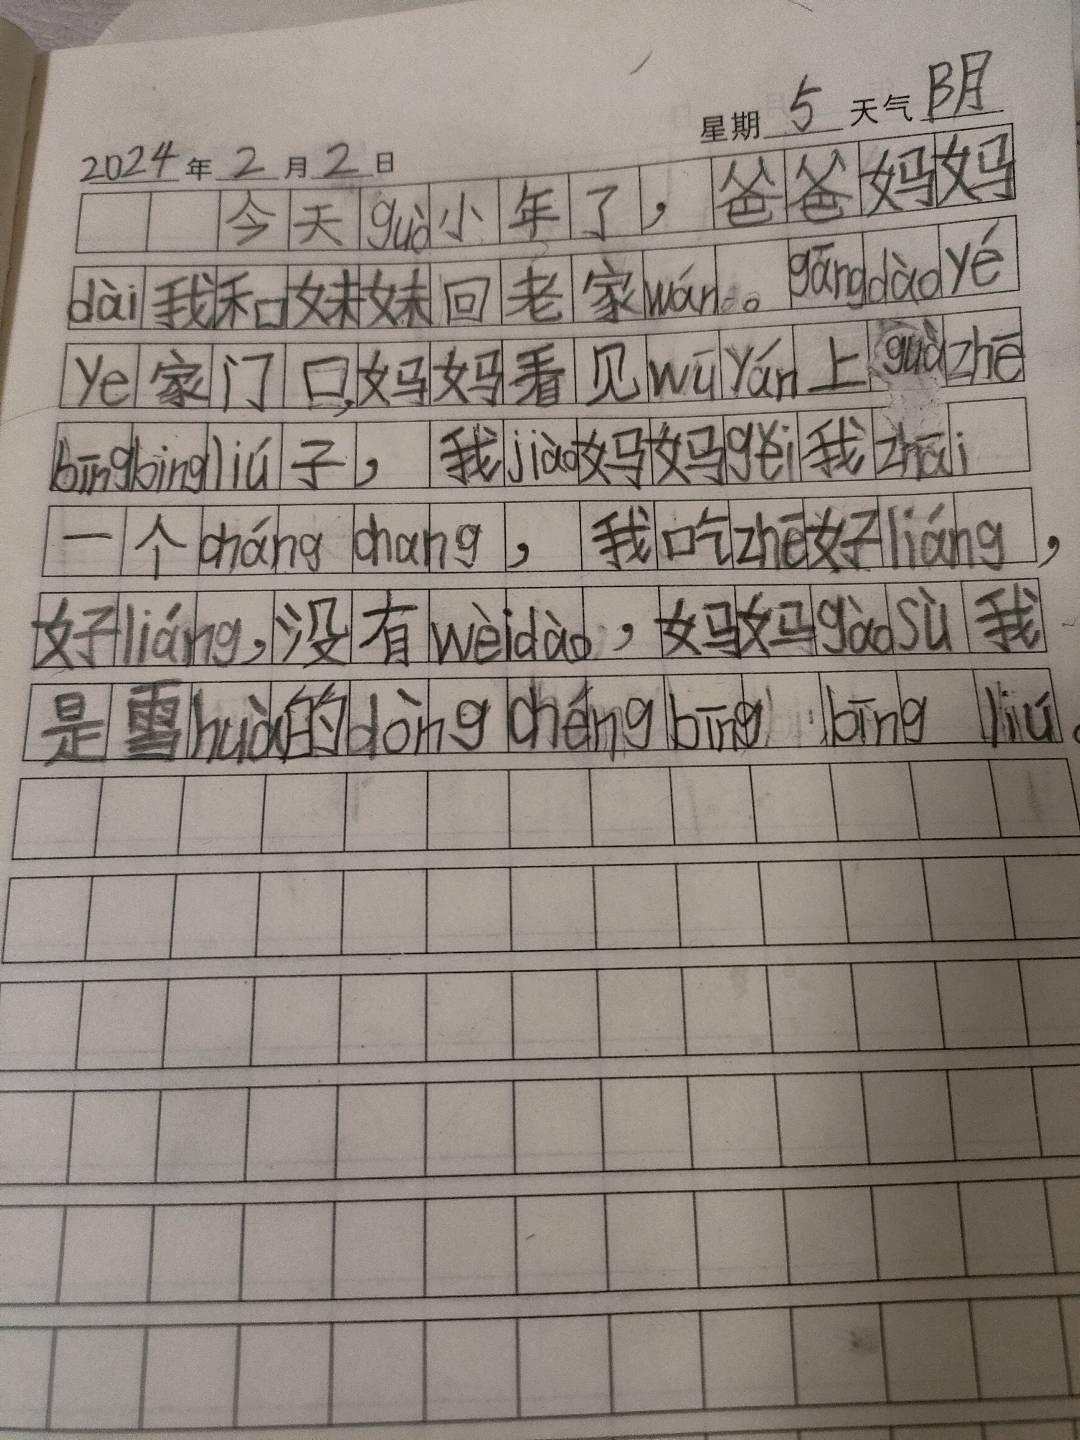 星期 5 天气 阴
2024 年 2 月 2 日
今天guò小年了，爸爸妈妈
dài我和妹妹回老家wán。gāngdàoyé
ye家门口,妈妈看见wūyán上guàzhē
bīngbingliú子，我jiào妈妈gěi我zhāi
一个chángchang，我吃zhē好liáng，
好liáng,没有wèidào，妈妈gàosù我
是雪huà的dòngchéngbīng bīng liú。